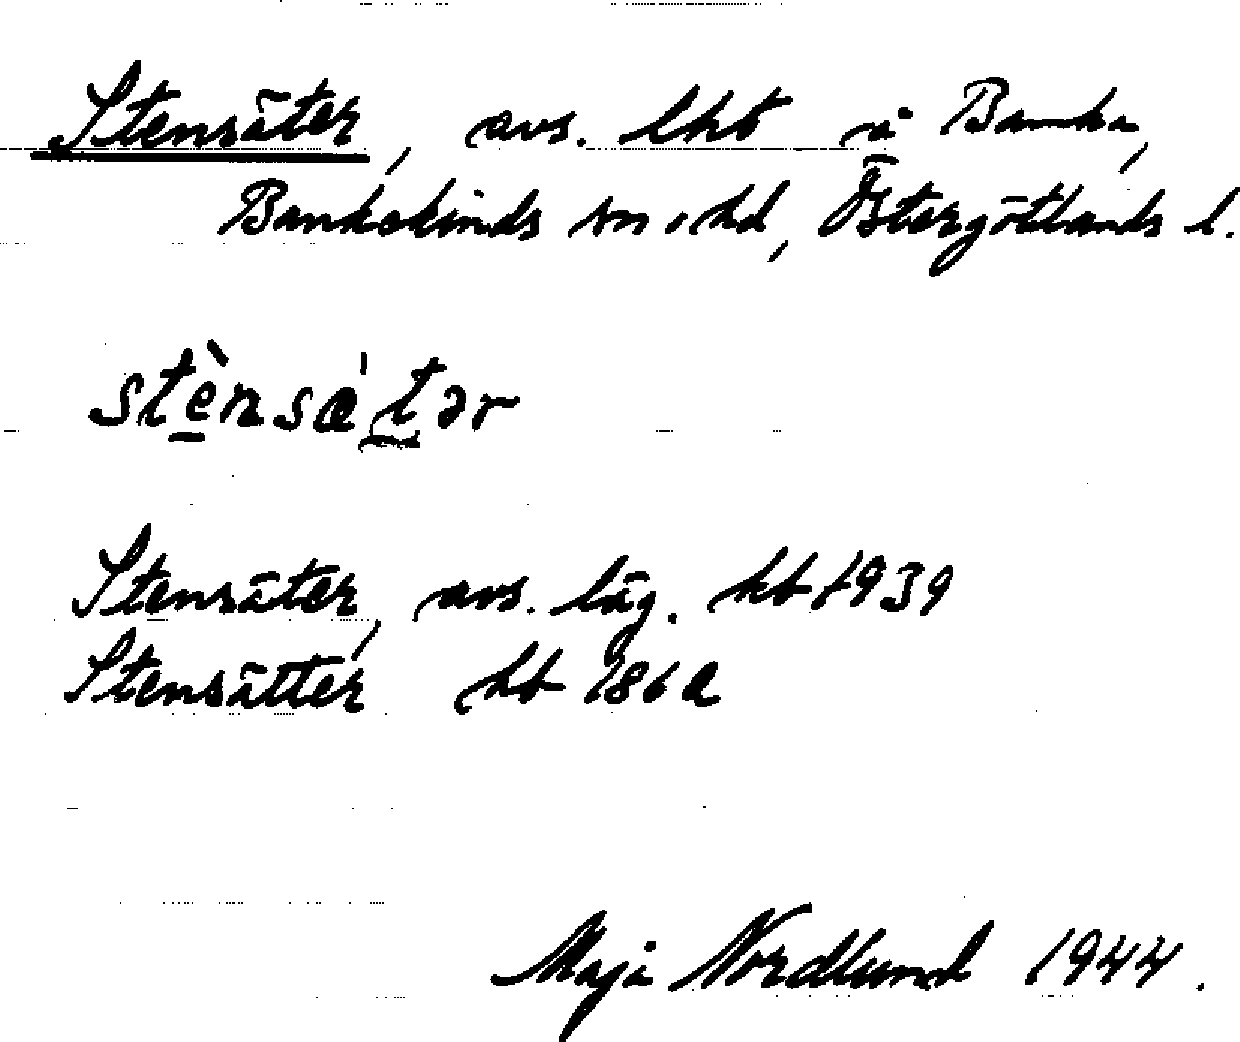 Stensäter, avs. lht å Banka,
Bankekinds sn o. hd, Östergötlands l.
stènsǽtər
Stensäter, avs. läg. kb 1939
Stensätter hb 186
Maja Nordlund 1944.